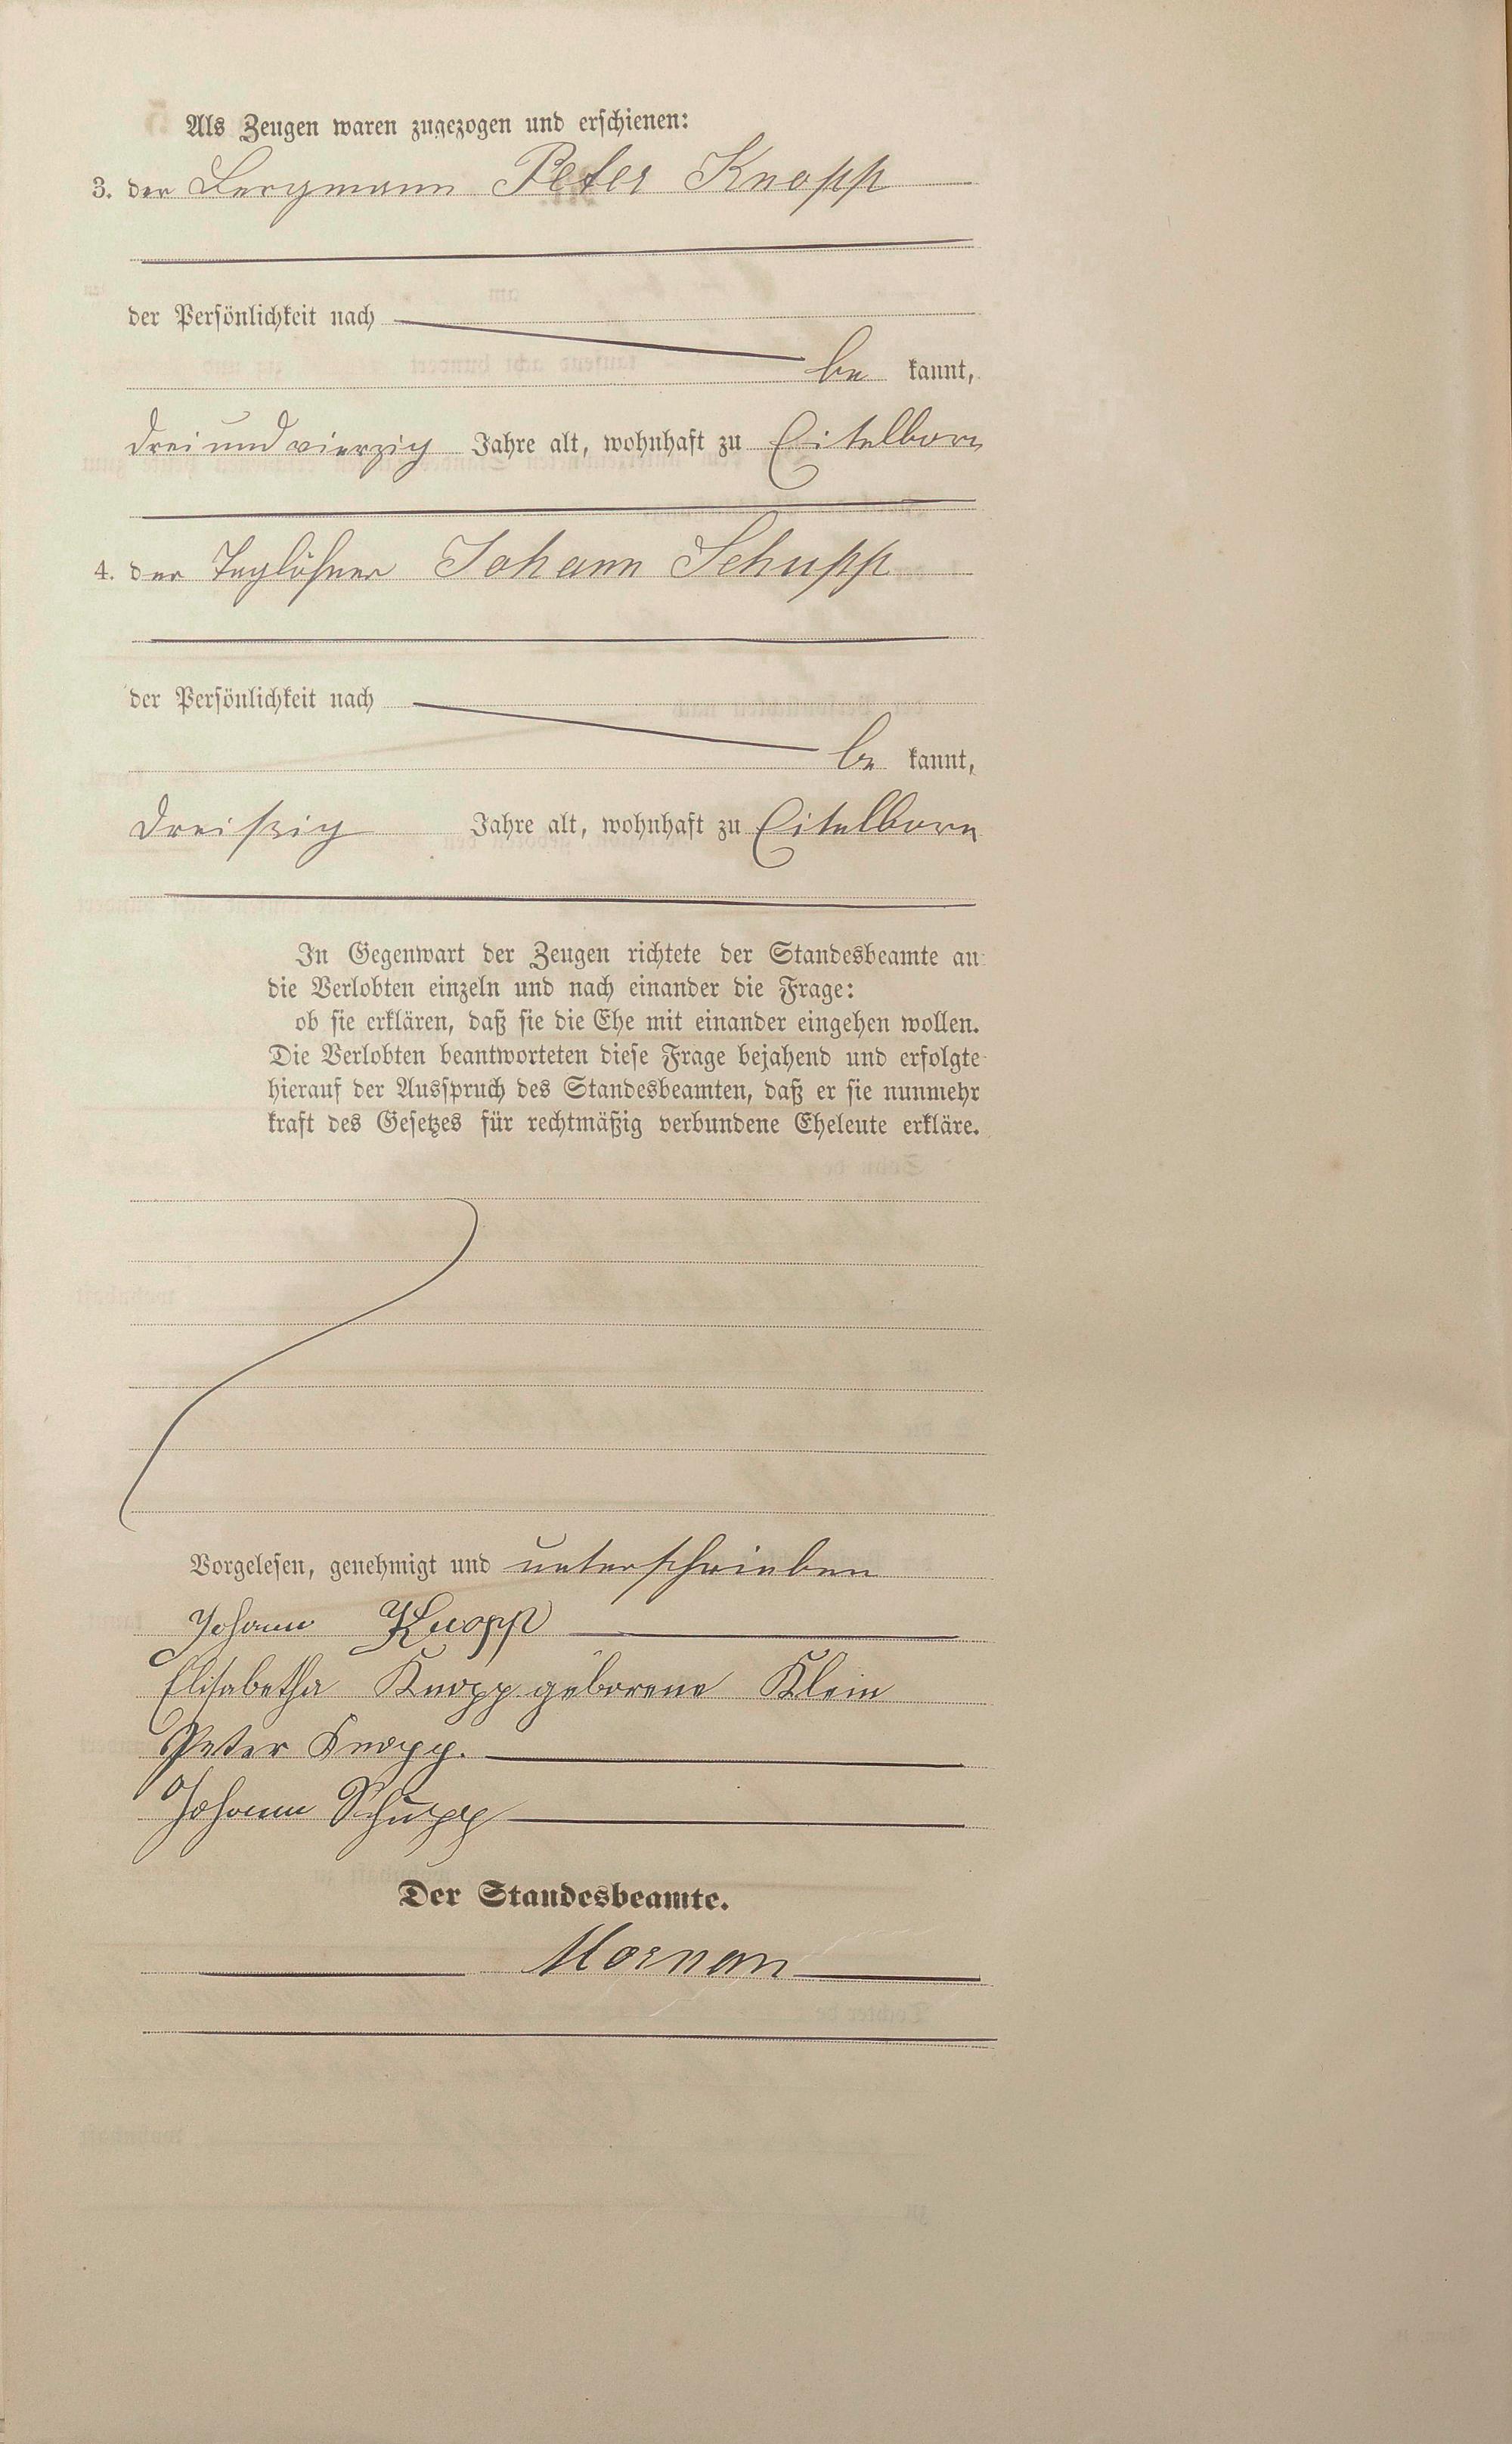 Als Zeugen waren zugezogen und erschienen:
3. der Bergmann Peter Knopp
der Persönlichkeit nach
be kannt,
dreiundvierzig Jahre alt, wohnhaft zu Eitelborn
4. der Taglöhner Johann Schupp
der Persönlichkeit nach
be kannt,
dreißig Jahre alt, wohnhaft zu Eitelborn
In Gegenwart der Zeugen richtete der Standesbeamte an
die Verlobten einzeln und nach einander die Frage:
ob sie erklären, daß sie die Ehe mit einander eingehen wollen.
Die Verlobten beantworteten diese Frage bejahend und erfolgte
hierauf der Ausspruch des Standesbeamten, daß er sie nunmehr
kraft des Gesetzes für rechtmäßig verbundene Eheleute erkläre.
Vorgelesen, genehmigt und unterschrieben
Johann Knopp
Elisabetha Knopp geborene Klein
Peter Knopp.
Johann Schupp
Der Standesbeamte.